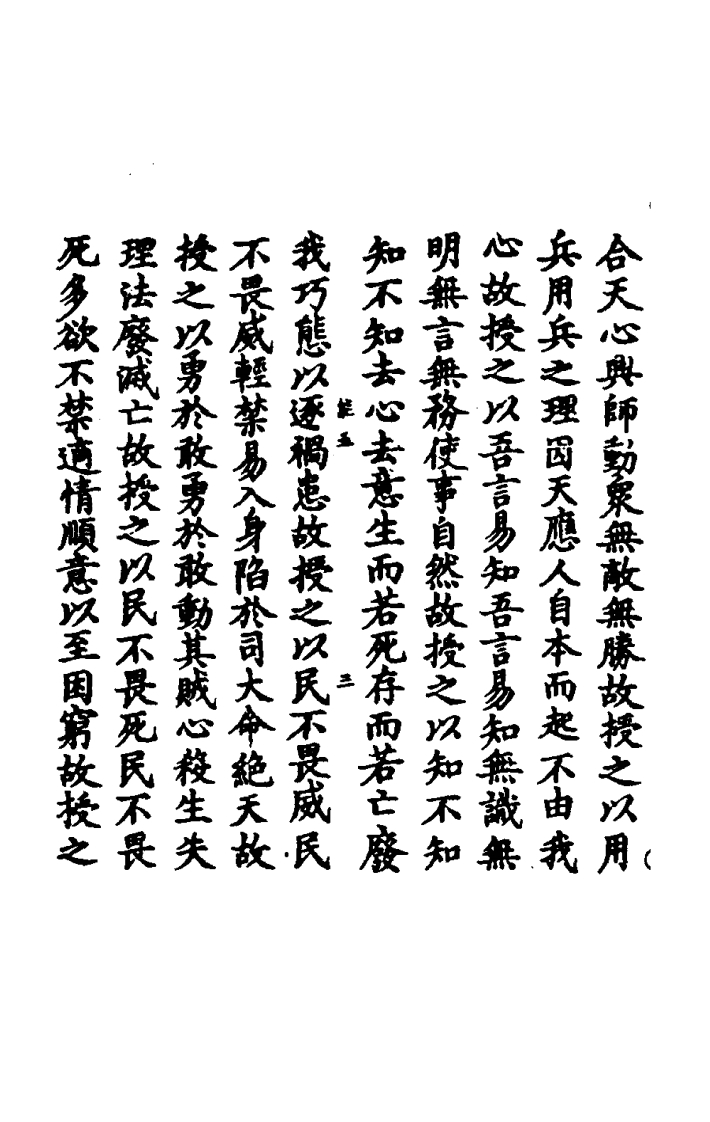 合天心興師動衆無敵無勝故授之以用
兵用兵之理囙天應人自本而起不由我
心故授之以吾言易知吾言易知無識無
明無言無務使事自然故授之以知不知
知不知去心去意生而若死存而若亡廢
能五 三
我巧態以逐禍患故授之以民不畏威民
不畏威輕禁易入身陷於司大命絶天故
授之以勇於敢勇於敢動其賊心殺生失
理法廢滅亡故授之以民不畏死民不畏
死多欲不禁適情順意以至困窮故授之